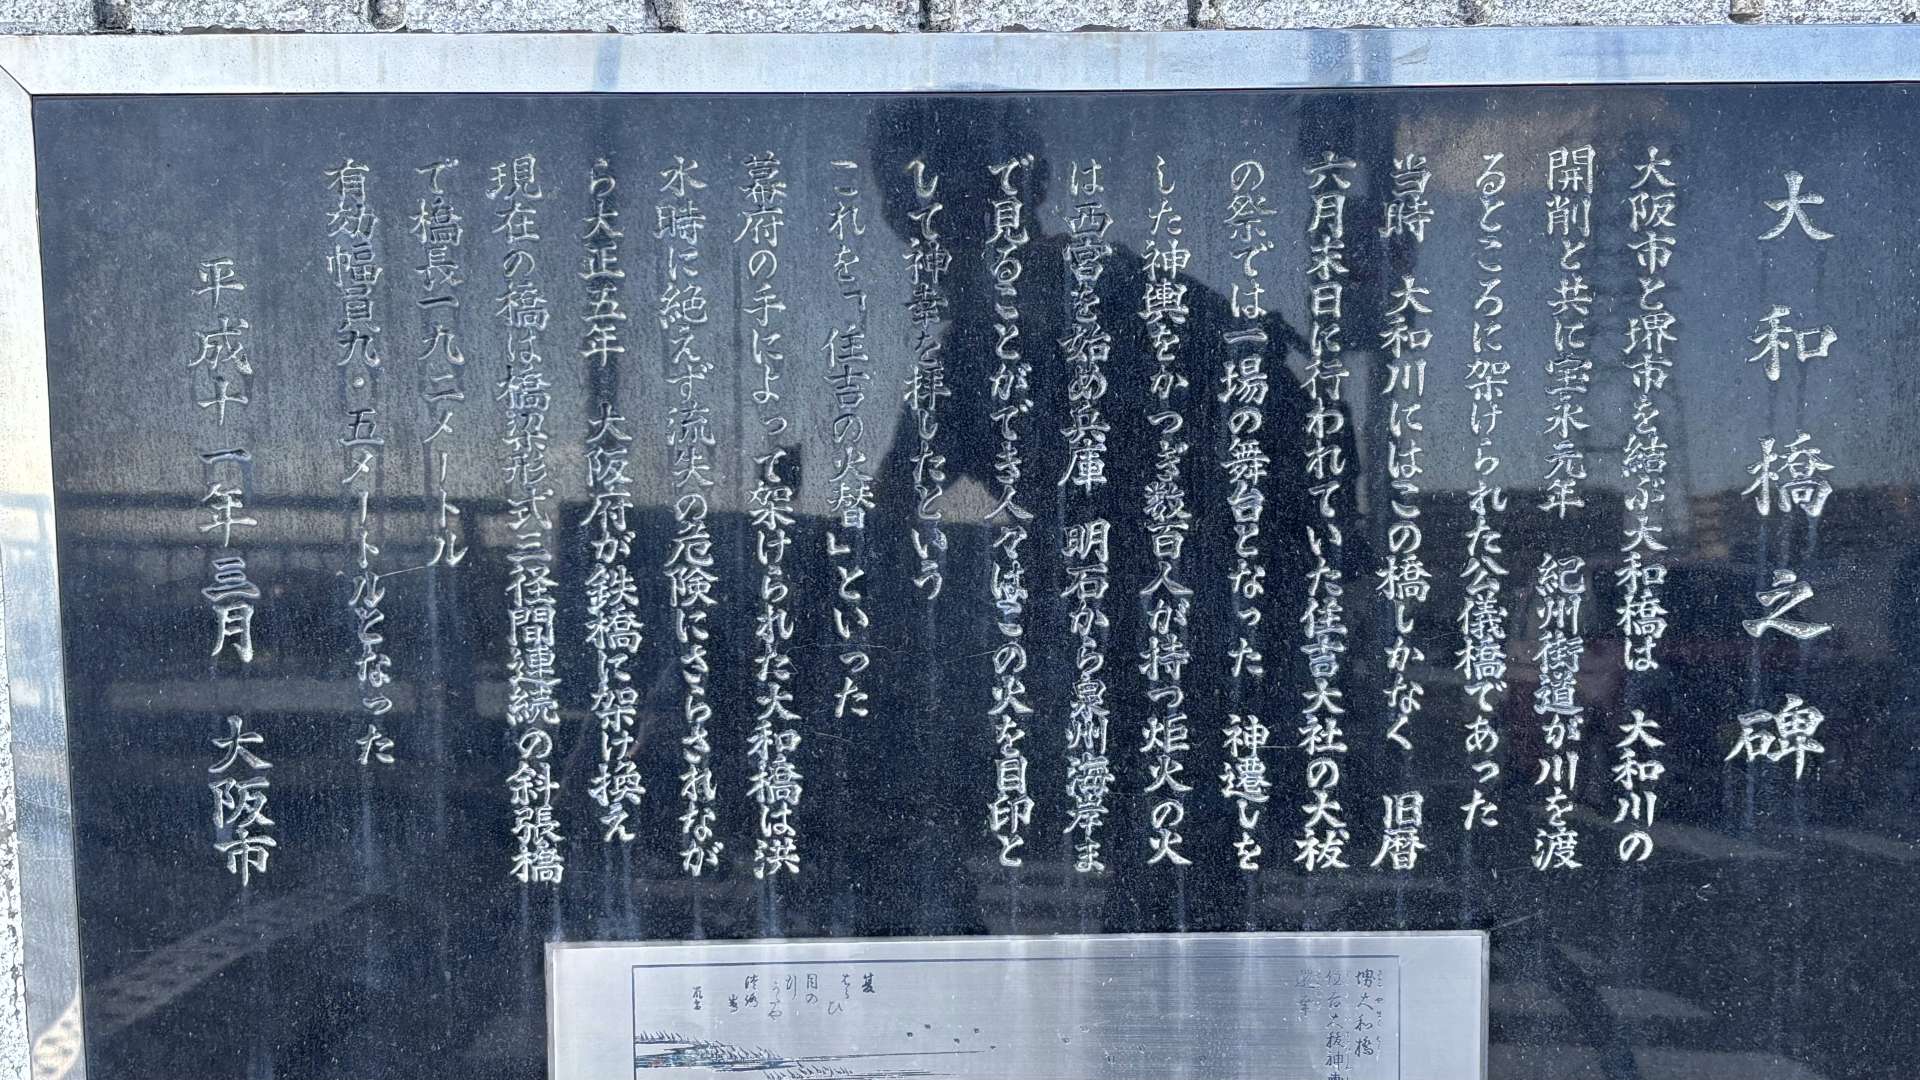 大和橋之碑
大阪市と堺市を結ぶ大和橋は　大和川の
開削と共に宝永元年　紀州街道が川を渡
るところに架けられた公儀橋であった
当時　大和川にはこの橋しかなく　旧暦
六月末日に行われていた住吉大社の大祓
の祭では一場の舞台となった　神遷しを
した神輿をかつぎ数百人が持つ炬火の火
は西宮を始め兵庫　明石から泉州海岸ま
で見ることができ人々はこの火を目印と
して神幸を拝したという
これを「住吉の火替」といった
幕府の手によって架けられた大和橋は洪
水時に絶えず流失の危険にさらされなが
ら大正五年　大阪府が鉄橋に架け換え
現在の橋は橋梁形式三径間連続の斜張橋
で橋長一九二メートル
有効幅員九・五メートルとなった
平成十一年三月　大阪市
堺大和橋
住吉大祓神